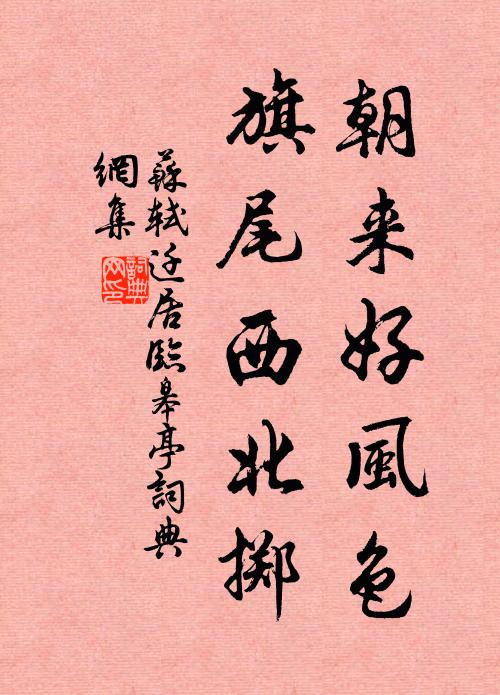 朝来好風色
旗尾西北掷
蘇軾迁居臨皋亭詞典
網集
詞典
网印